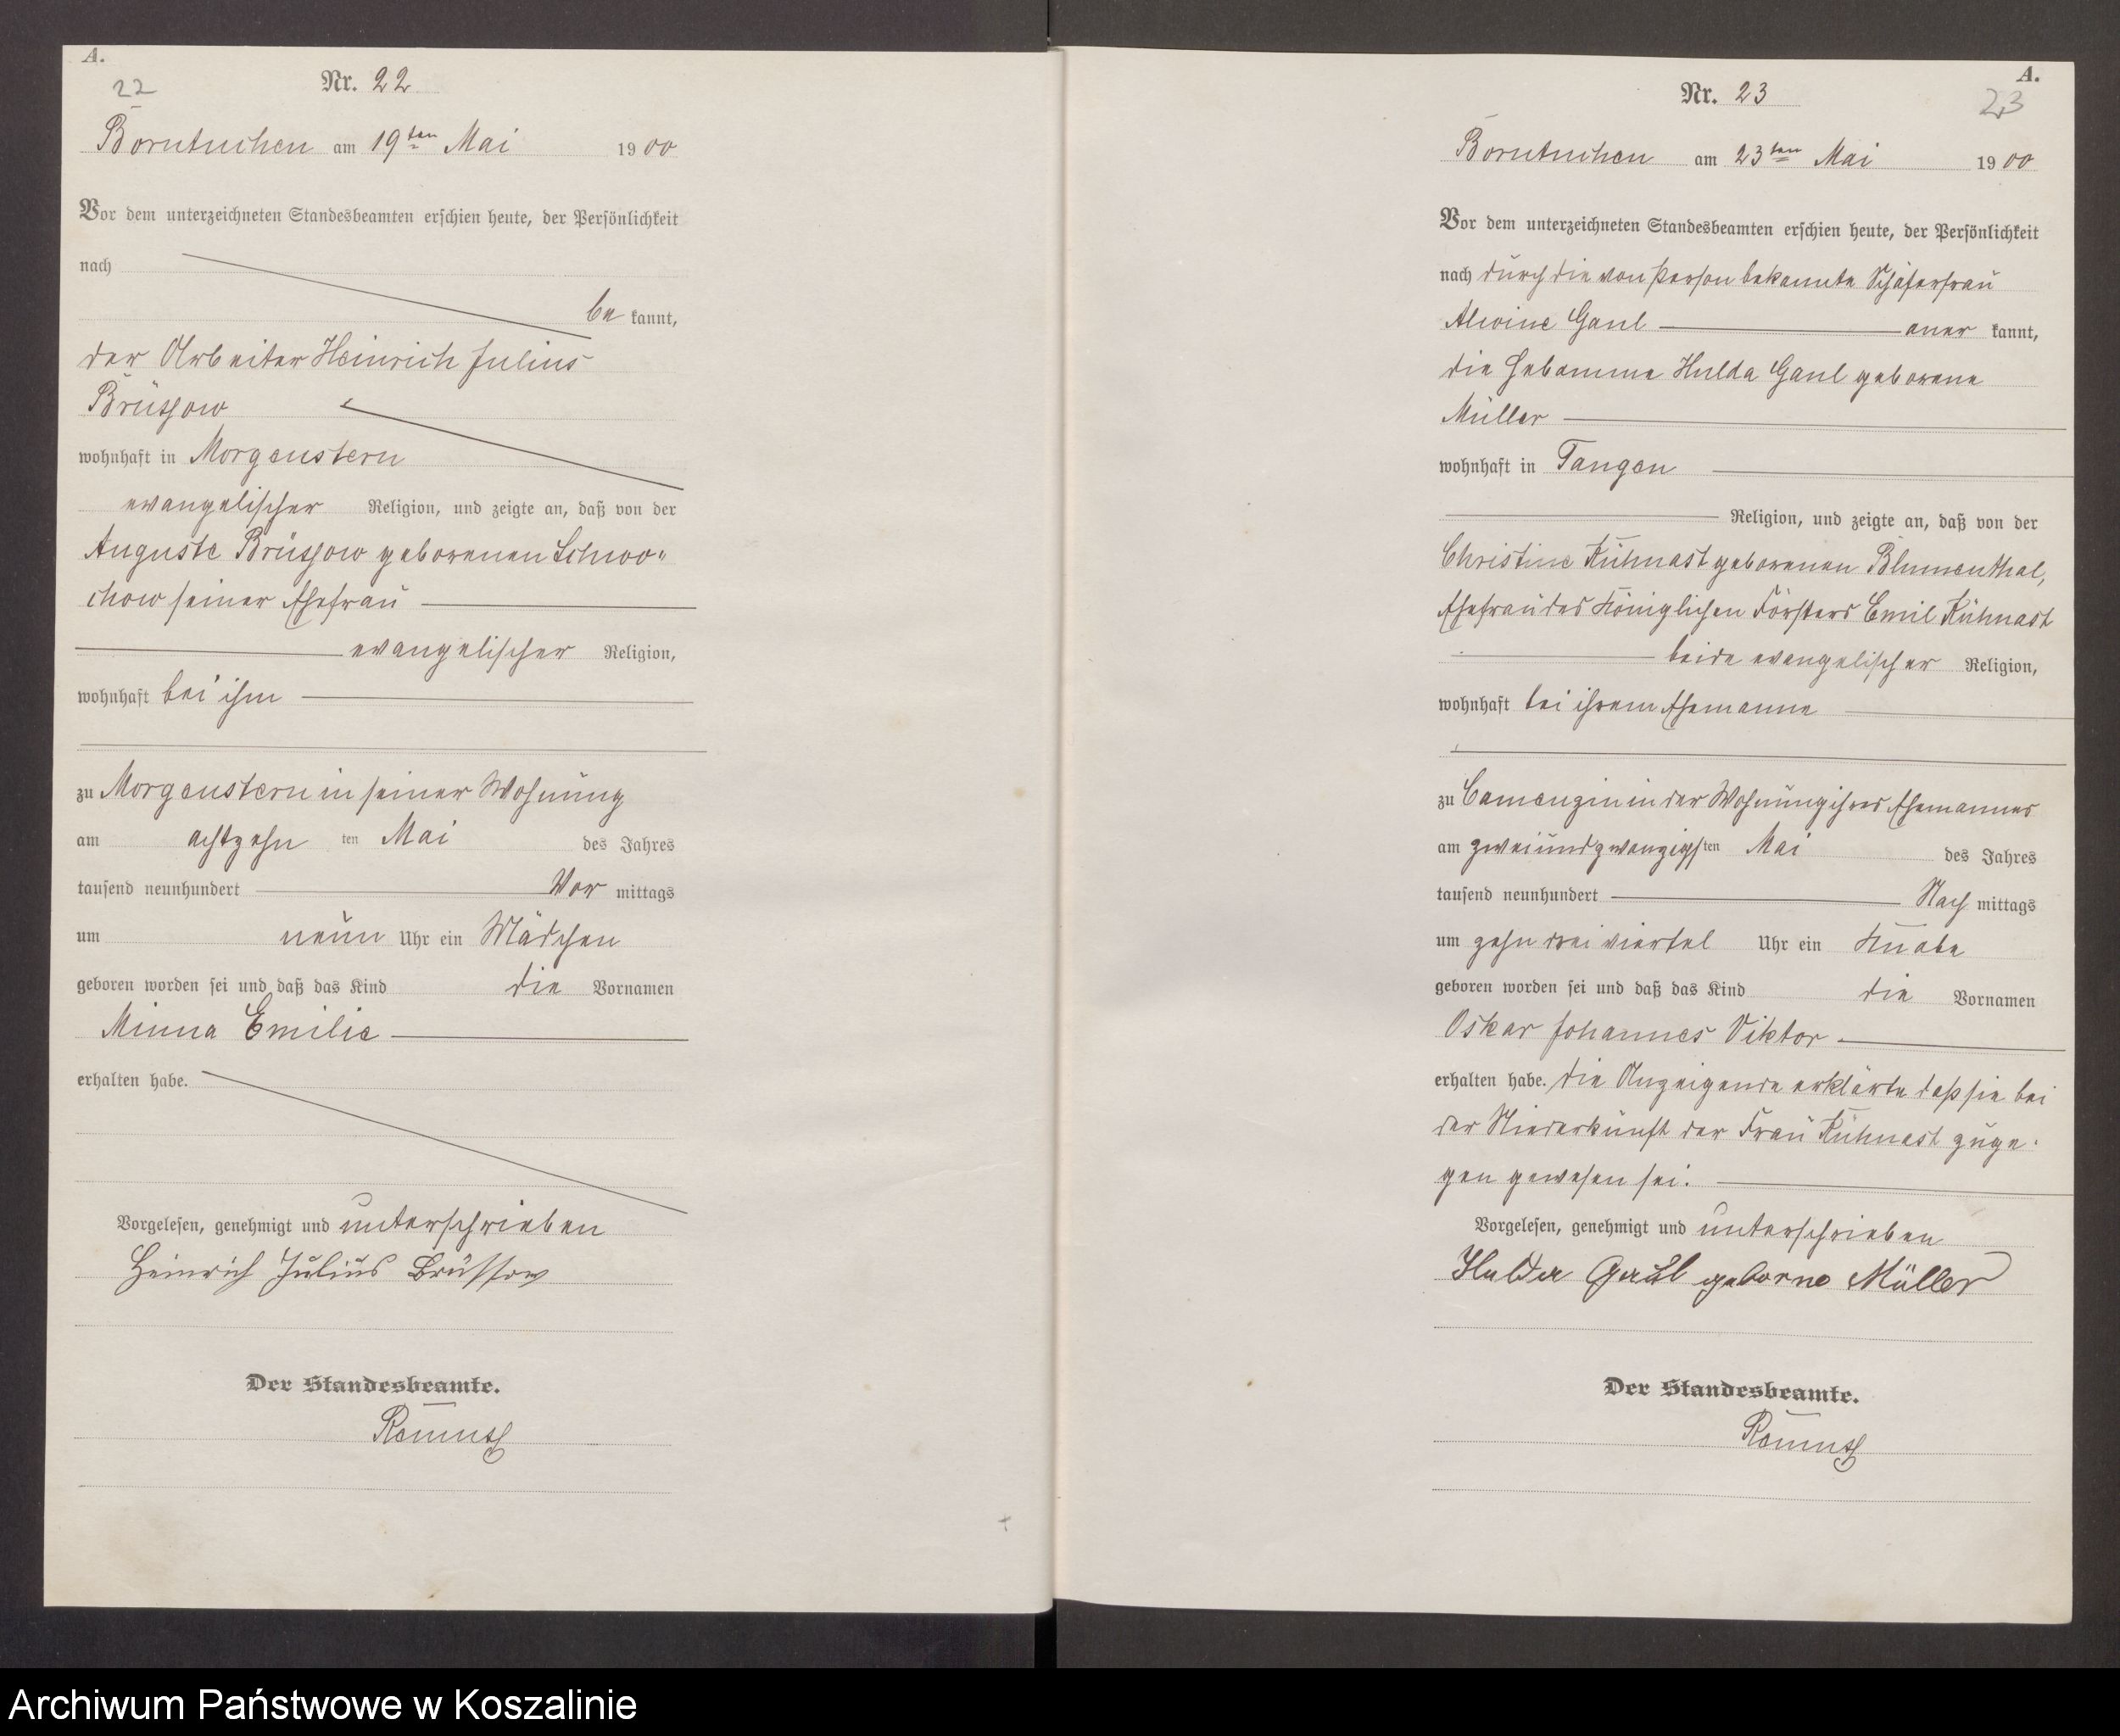 A.
22
Nr. 22
Borntuchen am 19ten Mai 1900
Vor dem unterzeichneten Standesbeamten erschien heute, der Persönlichkeit
nach
be kannt,
der Arbeiter Heinrich Julius
Brüssow
wohnhaft in Morgenstern
evangelischer Religion, und zeigte an, daß von der
Auguste Brüssow geborenen Schwo-
chow seiner Ehefrau
evangelischer Religion,
wohnhaft bei ihm
zu Morgenstern in seiner Wohnung
am achtzehn ten Mai des Jahres
tausend neunhundert Vor mittags
um neun Uhr ein Mädchen
geboren worden sei und daß das Kind die Vornamen
Minna Emilie
erhalten habe.
Vorgelesen, genehmigt und unterschrieben
Heinrich Julius Brüssow
Der Standesbeamte.
A.
23
Nr. 23
Borntuchen am 23ten Mai 1900
Vor dem unterzeichneten Standesbeamten erschien heute, der Persönlichkeit
nach durch die von Person bekannte Schäferfrau
Alwine Gaul aner kannt,
die Hebamme Hulda Gaul geborene
Müller
wohnhaft in Tangen
Religion, und zeigte an, daß von der
Christine Kühnast geborenen Blumenthal,
Ehefrau des Königlichen Försters Emil Kühnast
beide evangelischer Religion,
wohnhaft bei ihrem Ehemanne
zu Camenzin in der Wohnung ihres Ehemannes
am zweiundzwanzigsten Mai des Jahres
tausend neunhundert Nach mittags
um zehn drei viertel Uhr ein Knabe
geboren worden sei und daß das Kind die Vornamen
Oskar Johannes Viktor
erhalten habe. Die Anzeigende erklärte daß sie bei
der Niederkunft der Frau Kühnast zuge-
gen gewesen sei.
Vorgelesen, genehmigt und unterschrieben
Hulda Gaul geborne Müller
Der Standesbeamte.
Archiwum Państwowe w Koszalinie